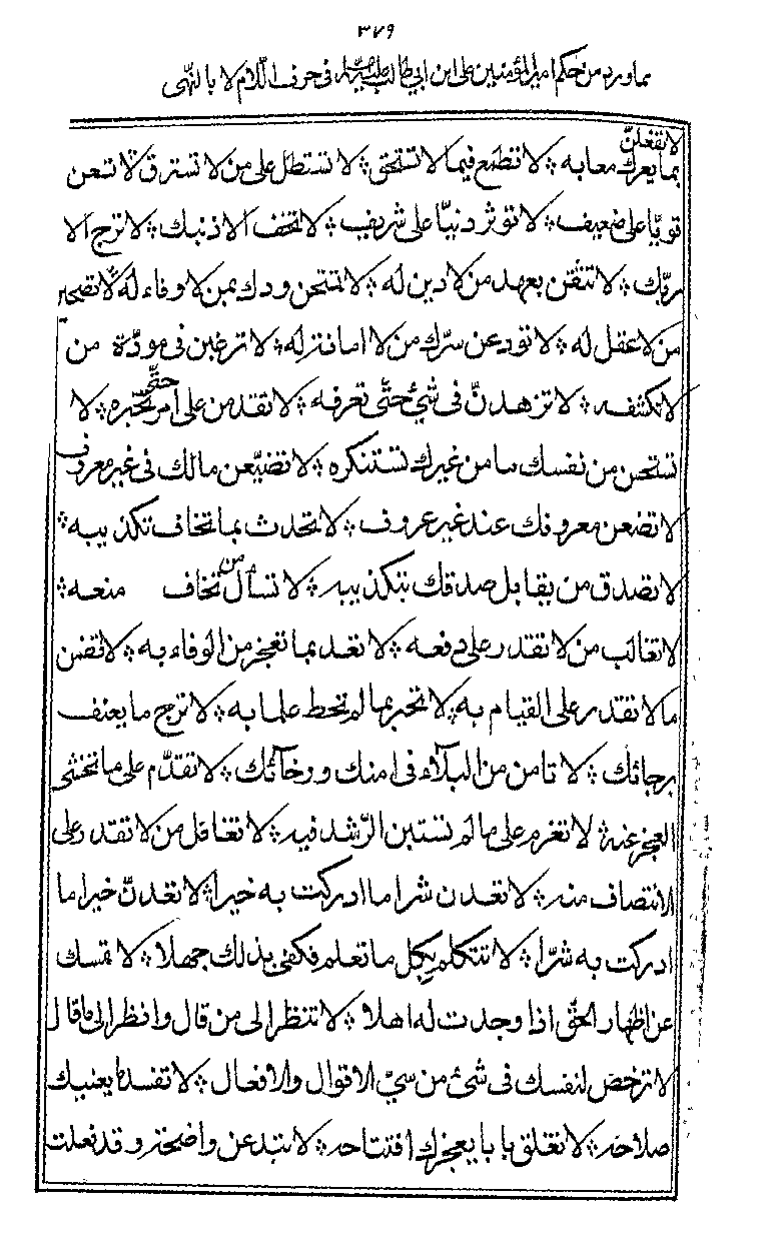 ٣٧٩
مما ورد من حكم امير المؤمنين علی ابن ابي طالب عليه السلام فی حرف اللام لا بالنهی
لا تفعلنّ
بما يعرك معابه ۞ لا تطمع فيما لا تستحق ۞ لا تستطل علی من لا تسترق لا تعن
قويّا علی ضعيف ۞ لا توثر دنيّا علی شريف ۞ لا تخف الا ذنبك ۞ لا ترج الا
ربّك ۞ لا تثقن بعهد من لا دين له ۞ لا تمنحن ودك بمن لا وفاء له لا تصحبن
من لا عقل له ۞ لا تودعن سرّك من لا امانة له ۞ لا ترغبن فی مودّة من
لا تكشفه ۞ لا تزهدنّ فی شئ حتّی تعرفه ۞ لا تقدمن علی امر حتّی تخبره ۞ لا
تستحسن من نفسك ما من غيرك تستنكره ۞ لا تضيّعن مالك فی غير معروف
لا تضعن معروفك عند غير عروف ۞ لا تحدث بما تخاف تكذيبه ۞
لا تصدق من يقابل صدقك بتكذيبه ۞ لا تسأل من تخاف منعه ۞
لا تغالب من لا تقدر علی دفعه ۞ لا تعد بما تعجز من الوفاء به ۞ لا تضمن
ما لا تقدر علی القيام به ۞ لا تخبر بما لم تحط علما به ۞ لا ترج ما يعنف
برجائك ۞ لا تامن من البلاء فی امنك ورخائك ۞ لا تقدّم علی ما تخشی
العجز عنه ۞ لا تعزم علی ما لم تستبن الرّشد فيه ۞ لا تغافل من لا تقدر علی
الانتصاف منه ۞ لا تعدن شرا ما ادركت به خيرا ۞ لا تعدنّ خيرا ما
ادركت به شرّا ۞ لا تتكلم بكل ما تعلم فكفی بذلك جهلا ۞ لا تمسك
عن اظهار الحقّ اذا وجدت له اهلا ۞ لا تنظر الی من قال وانظر الی ما قال
لا ترخص لنفسك فی شئ من سيئ الاقوال والافعال ۞ لا تفسد ما يعنيك
صلاحه ۞ لا تغلق بابا يعجزك افتتاحه ۞ لا تبد عن واضحة وقد فعلت